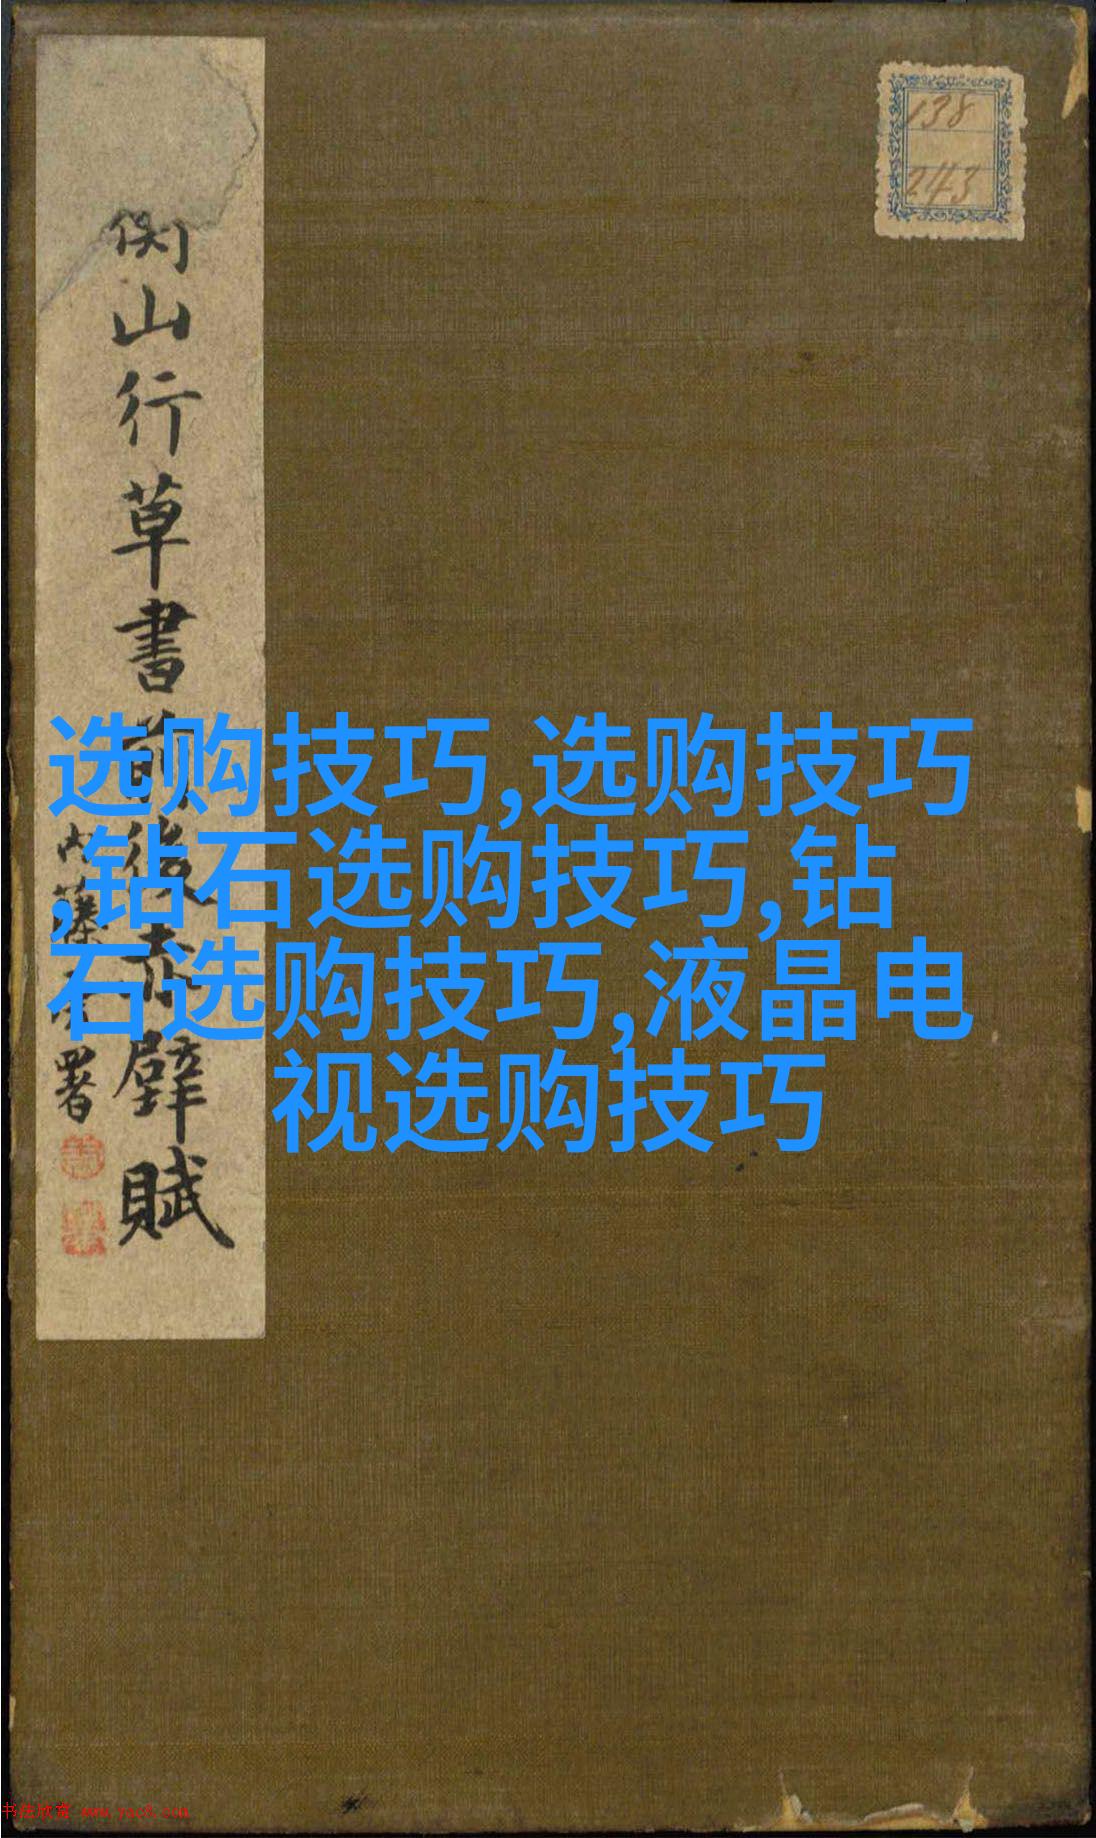 138
243
衡山行草書前後赤壁賦
内藤署
选购技巧,选购技巧
,钻石选购技巧,钻
石选购技巧,液晶电
视选购技巧
书法欣赏 www.yac8.com